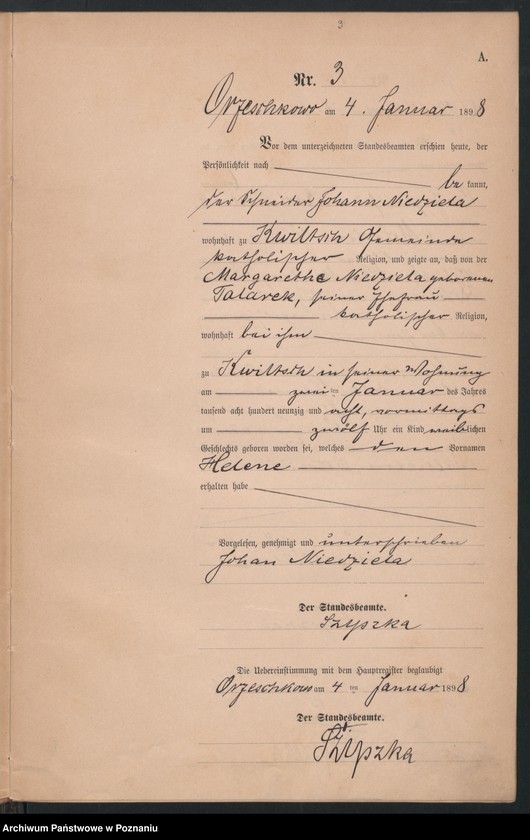 3
A.
Nr. 3
Orzeschkowo am 4. Januar 1898
Vor dem unterzeichneten Standesbeamten erschien heute, der
Persönlichkeit nach
be kannt,
der Schneider Johann Niedziela
wohnhaft zu Kwiltsch Gemeinde
katholischer Religion, und zeigte an, daß von der
Margarethe Niedziela geborenen
Tatarek, seiner Ehefrau
katholischer Religion,
wohnhaft bei ihm
zu Kwiltsch in seiner Wohnung
am zwei ten Januar des Jahres
tausend acht hundert neunzig und acht, vormittags
um zwölf Uhr ein Kind weiblichen
Geschlechts geboren worden sei, welches den Vornamen
Helene
erhalten habe
Vorgelesen, genehmigt und unterschrieben
Johan Niedziela
Der Standesbeamte.
Szypzka
Die Uebereinstimmung mit dem Hauptregister beglaubigt
Orzeschkowo am 4 ten Januar 1898
Der Standesbeamte.
Szypzka
Archiwum Państwowe w Poznaniu